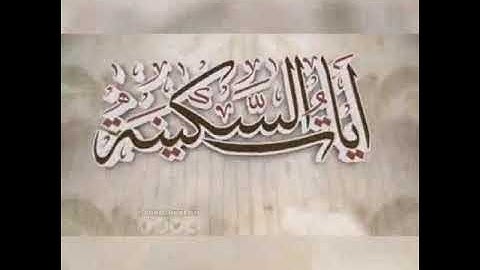 آيات السكينة